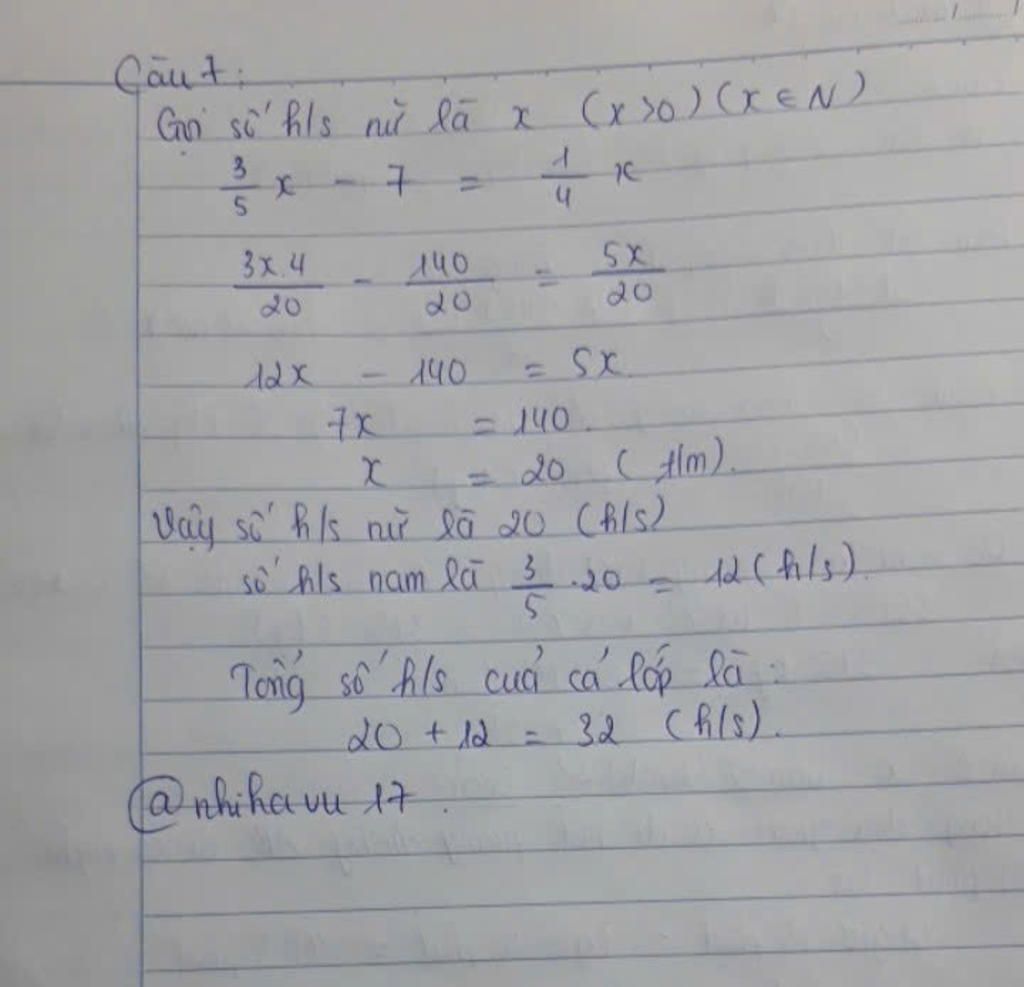 Câu 7:
Gọi số h/s nữ là x (x>0) (x ∈ N)
3/5 x - 7 = 1/4 x
3x.4/20 - 140/20 = 5x/20
12x - 140 = 5x.
7x = 140.
x = 20 (t/m).
Vậy số h/s nữ là 20 (h/s)
số h/s nam là 3/5 . 20 = 12 (h/s).
Tổng số h/s của cả lớp là :
20 + 12 = 32 (h/s).
@nhihavu 17.